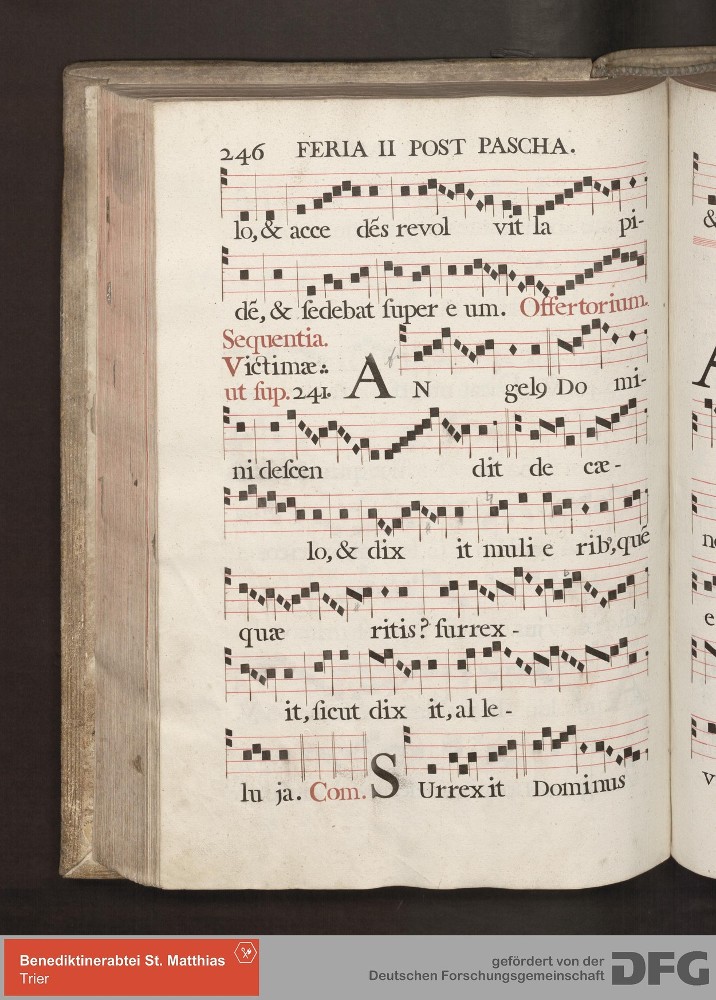 246 FERIA II POST PASCHA.
lo, & acce dẽs revol vit la pi-
dẽ, & ſedebat ſuper e um. Offertorium.
Sequentia.
Victimæ.:
ut ſup. 241. AN gelꝰ Do mi-
ni deſcen dit de cæ-
lo, & dix it muli e rib', quẽ
quæ ritis? ſurrex-
it, ſicut dix it, al le-
lu ja. Com. SUrrexit Dominus
&
A
n
e
v
Benediktinerabtei St. Matthias
Trier
gefördert von der
Deutschen Forschungsgemeinschaft DFG